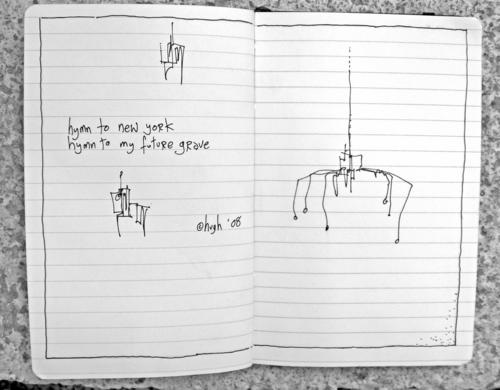 hymn to new york
hymn to my future grave
@hugh '08